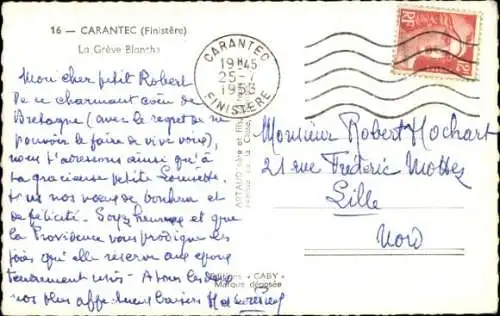 16 — CARANTEC (Finistère)
La Grève Blanche
Mon cher petit Robert
De ce charmant coin de
Bretagne (avec le regret de ne
pouvoir le faire de vive voix),
nous t'adressons ainsi qu'à
ta gracieuse petite
tous nos vœux de bonheur et
de félicité. Soyez heureux et que
la Providence vous prodigue les
joies qu'elle réserve aux époux
tendrement unis - A tous les deux
nos plus affectueux baisers
CARANTEC
19H45
25-7
1953
FINISTÈRE
RF
Monsieur Robert Hochart
21 rue Frédéric Mottez
Lille
Nord
Editions "CABY"
Marque déposée